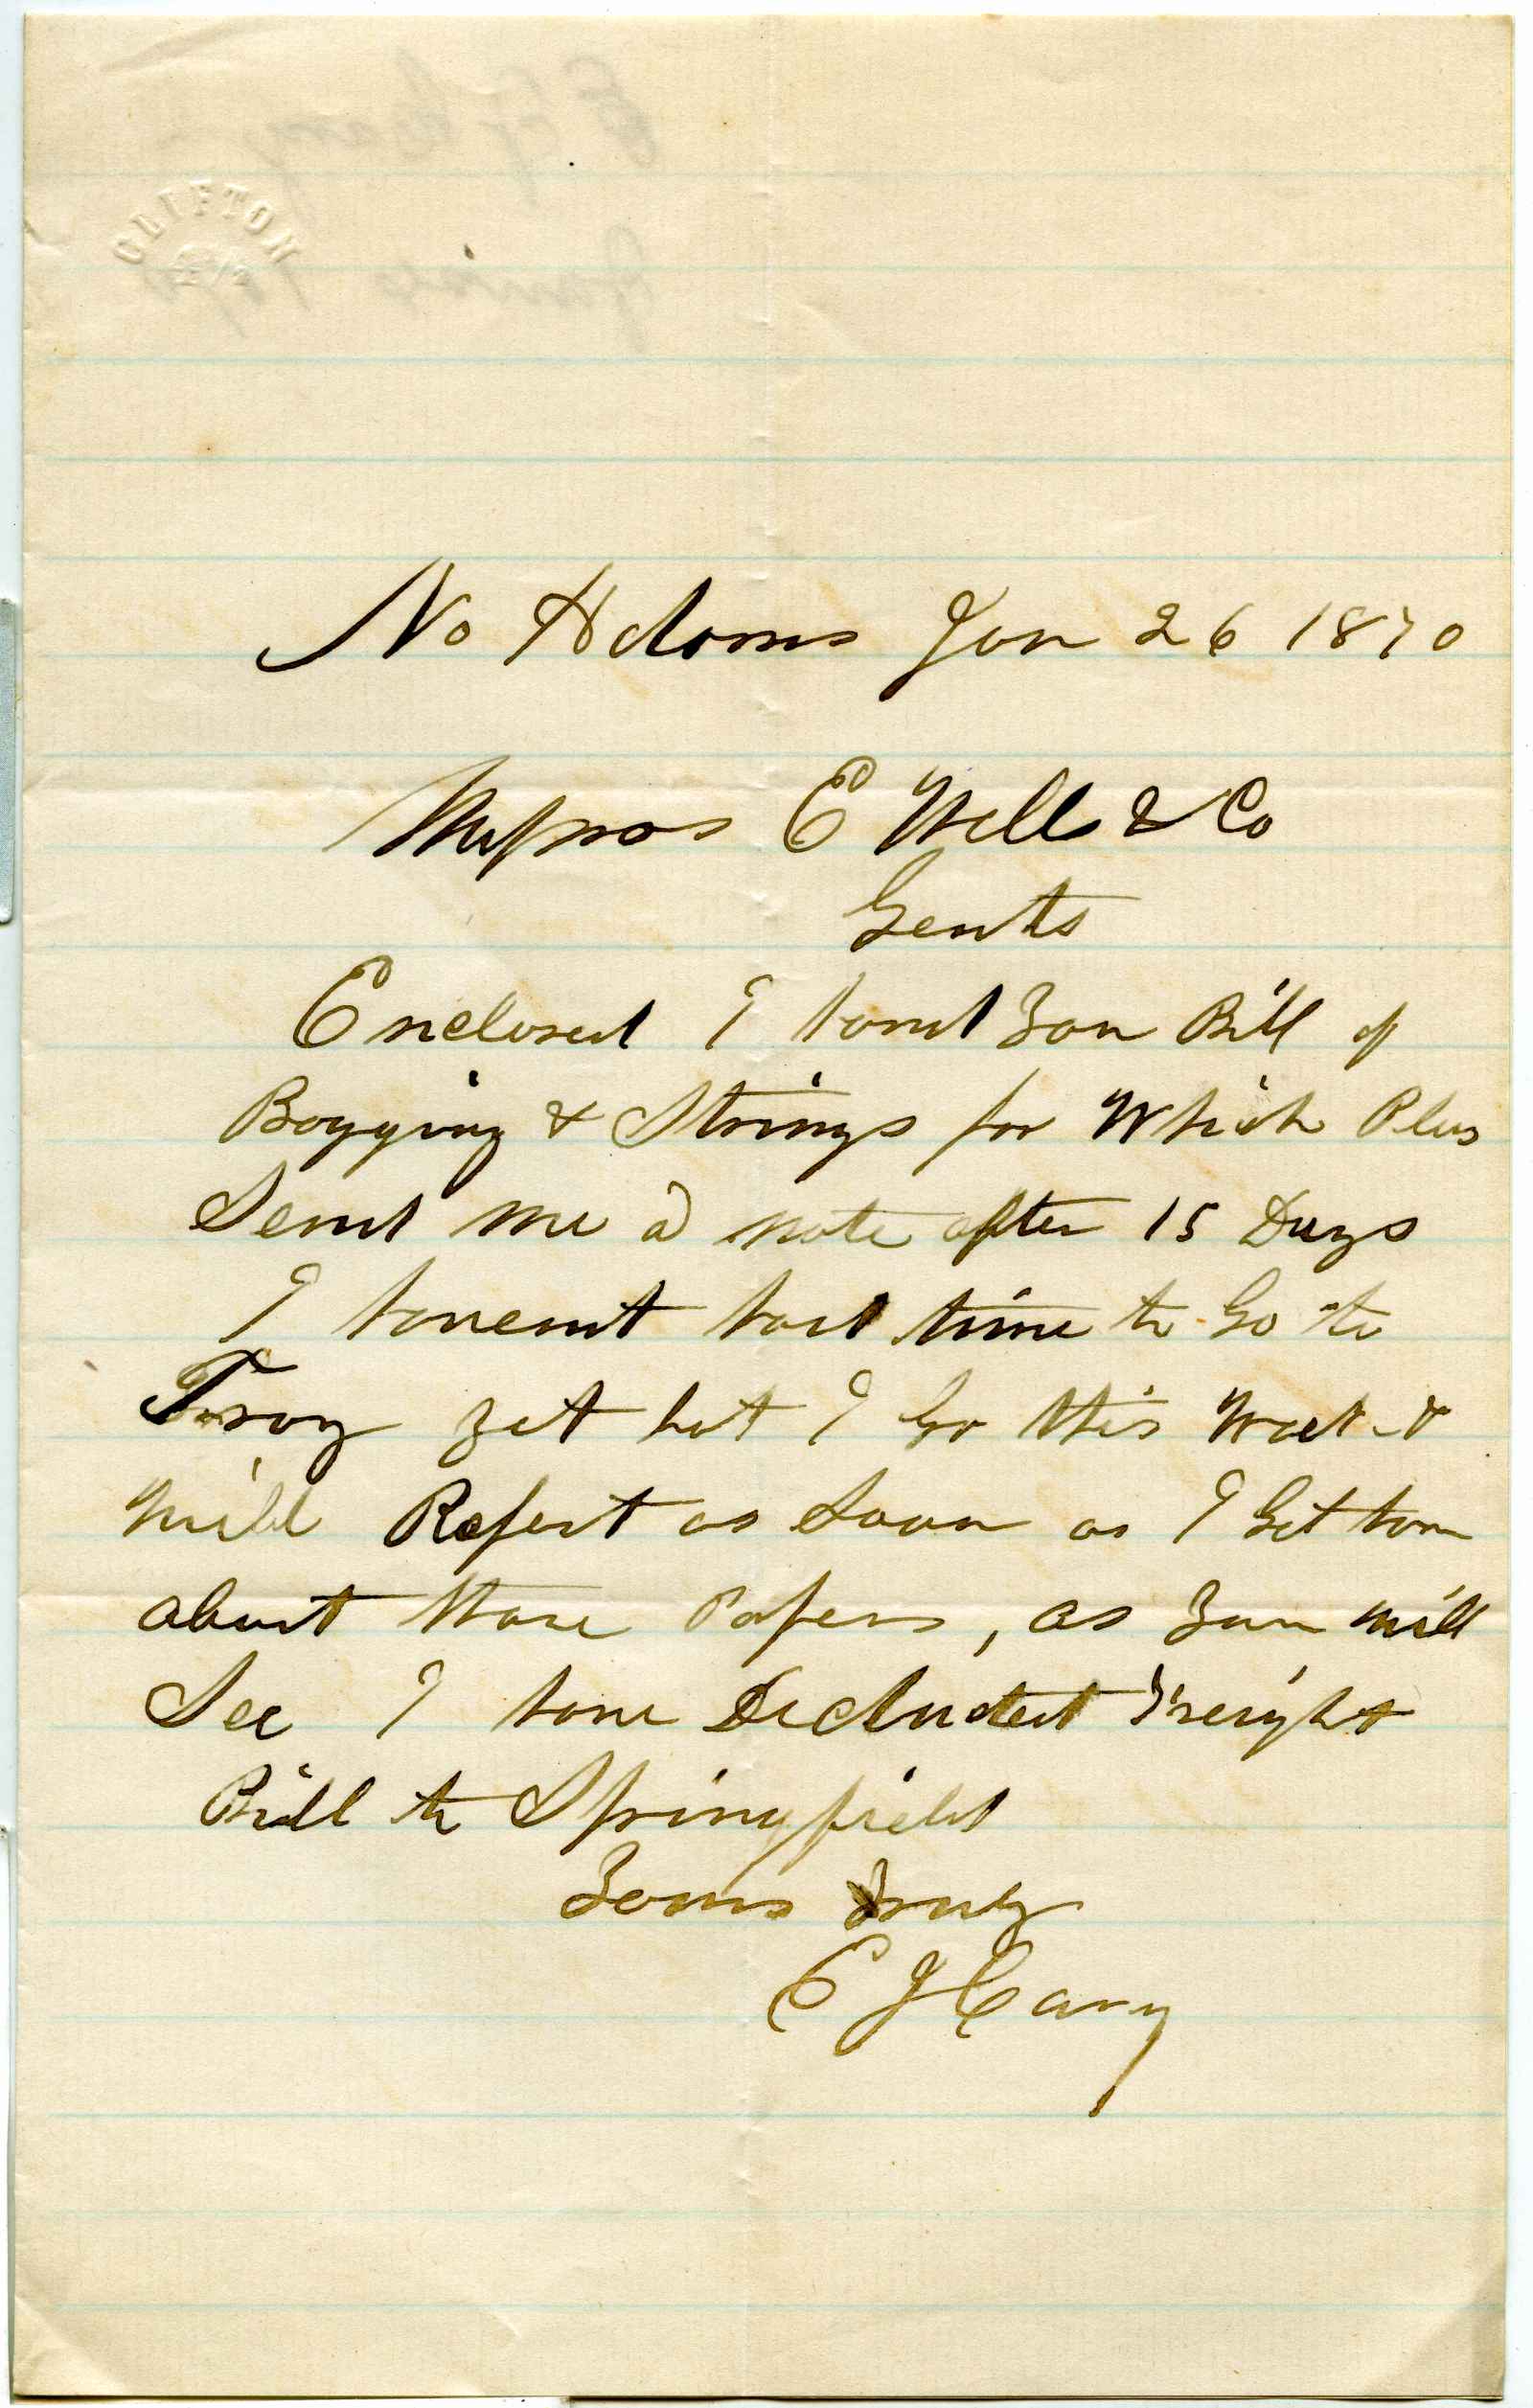 CLIFTON
No Adams Jan 26 1870
Messrs E Wells & Co
Gents
Enclosed I hand you Bill of
Bagging & Strings for Which Pleas
Send me a note after 15 Days
I havent had time to Go to
Troy yet but I Go this Week &
will Report as Soon as I Get
about those Papers, as you will
See I have Deducted Freight
Bill to Springfield
Yours Truly
E J Cary